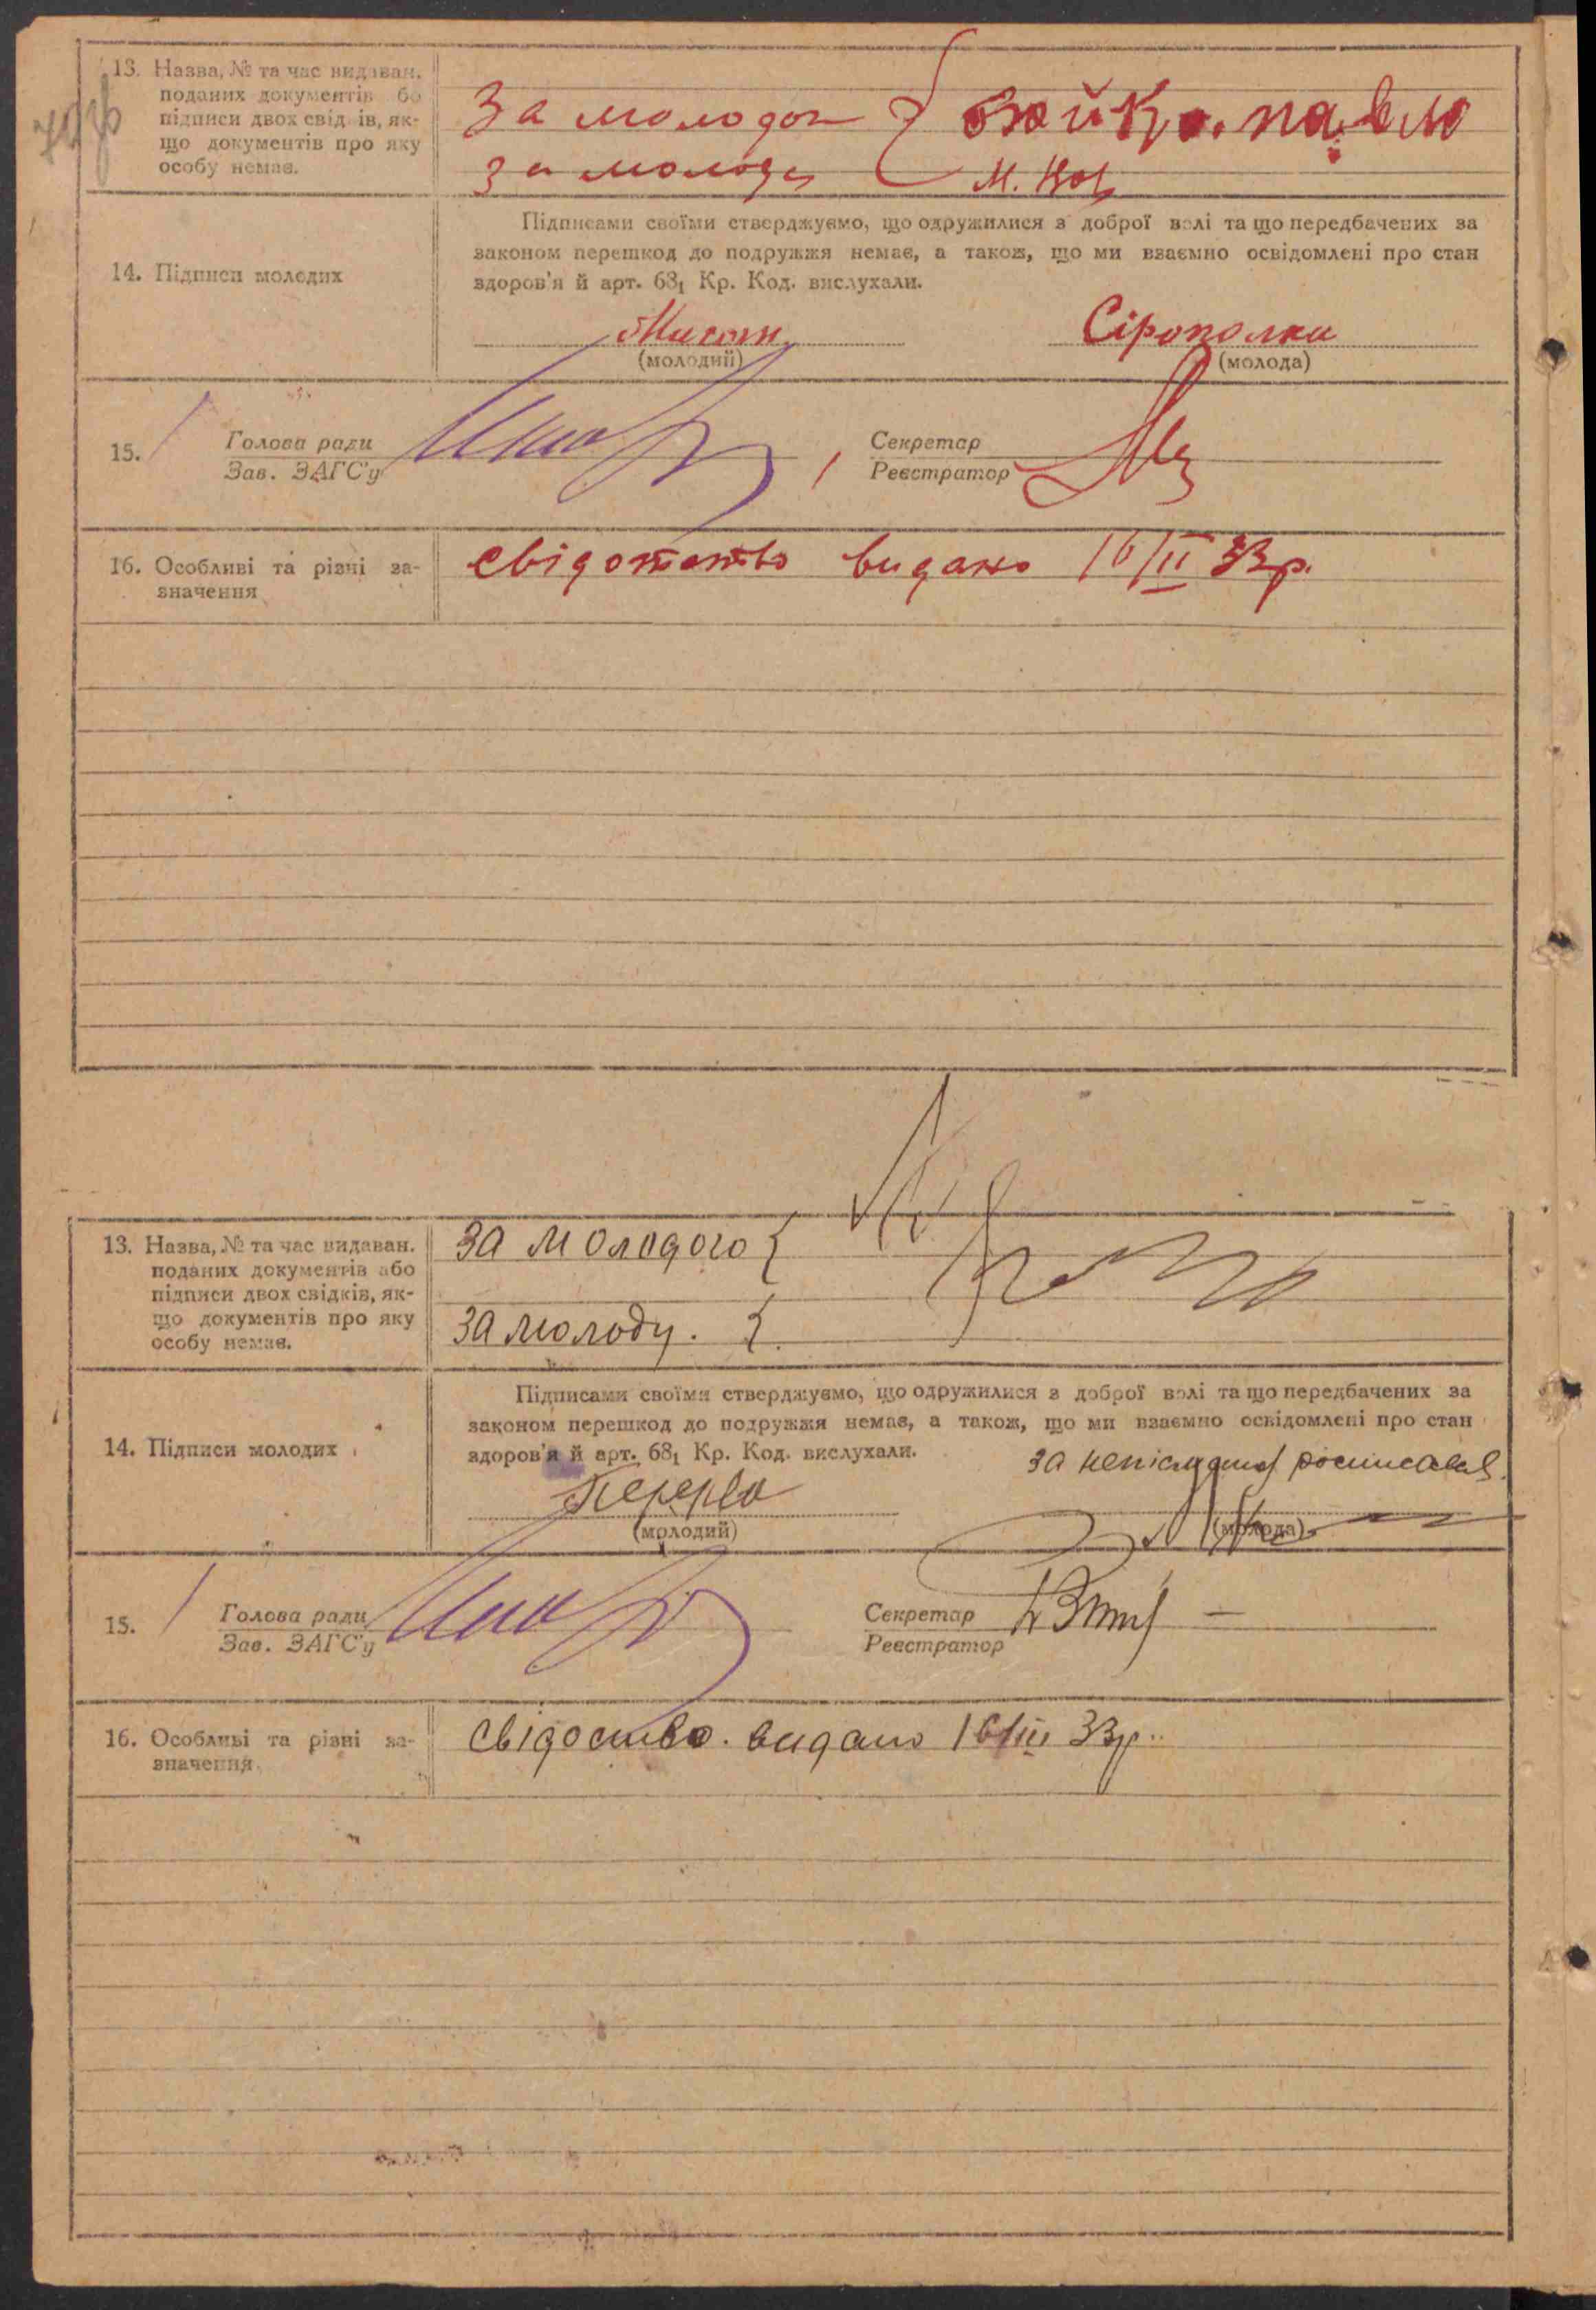 13. Назва, № та час видаван.
поданих документів бо
підписи двох свід ів, як-
що документів про яку
особу немає.
За молодог
за молоду
Бойко. павло
М.
14. Підписи молодих
Підписами своїми стверджуємо, що одружилися з доброї волі та що передбачених за
законом перешкод до подружжя немає, а також, що ми взаємно освідомлені про стан
здоров'я й арт. 68₁ Кр. Код. вислухали.
Сірополка
(молодий)
(молода)
15.
Голова ради
Зав. ЗАГС'у
Секретар
Реєстратор
16. Особливі та різні за-
значення
видано 16/II 33р.
13. Назва, № та час видаван.
поданих документів або
підписи двох свідків, як-
що документів про яку
особу немає.
За молодого
За молоду.
14. Підписи молодих
Підписами своїми стверджуємо, що одружилися з доброї волі та що передбачених за
законом перешкод до подружжя немає, а також, що ми взаємно освідомлені про стан
здоров'я й арт. 68₁ Кр. Код. вислухали.
за
Перерва
(молодий)
(молода)
15.
Голова ради
Зав. ЗАГС'у
Секретар
Реєстратор
16. Особливі та різні за-
значення
свідоство. видано 16/III 33р.